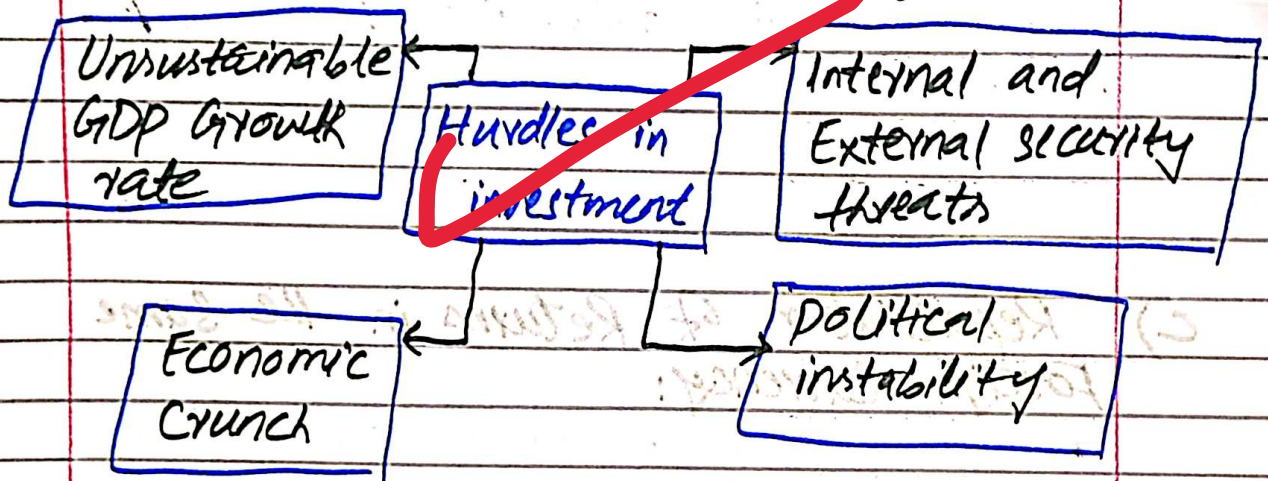 Unsustainable
GDP Growth
rate
Hurdles in
investment
Internal and
External security
threats
Economic
Crunch
Political
instability